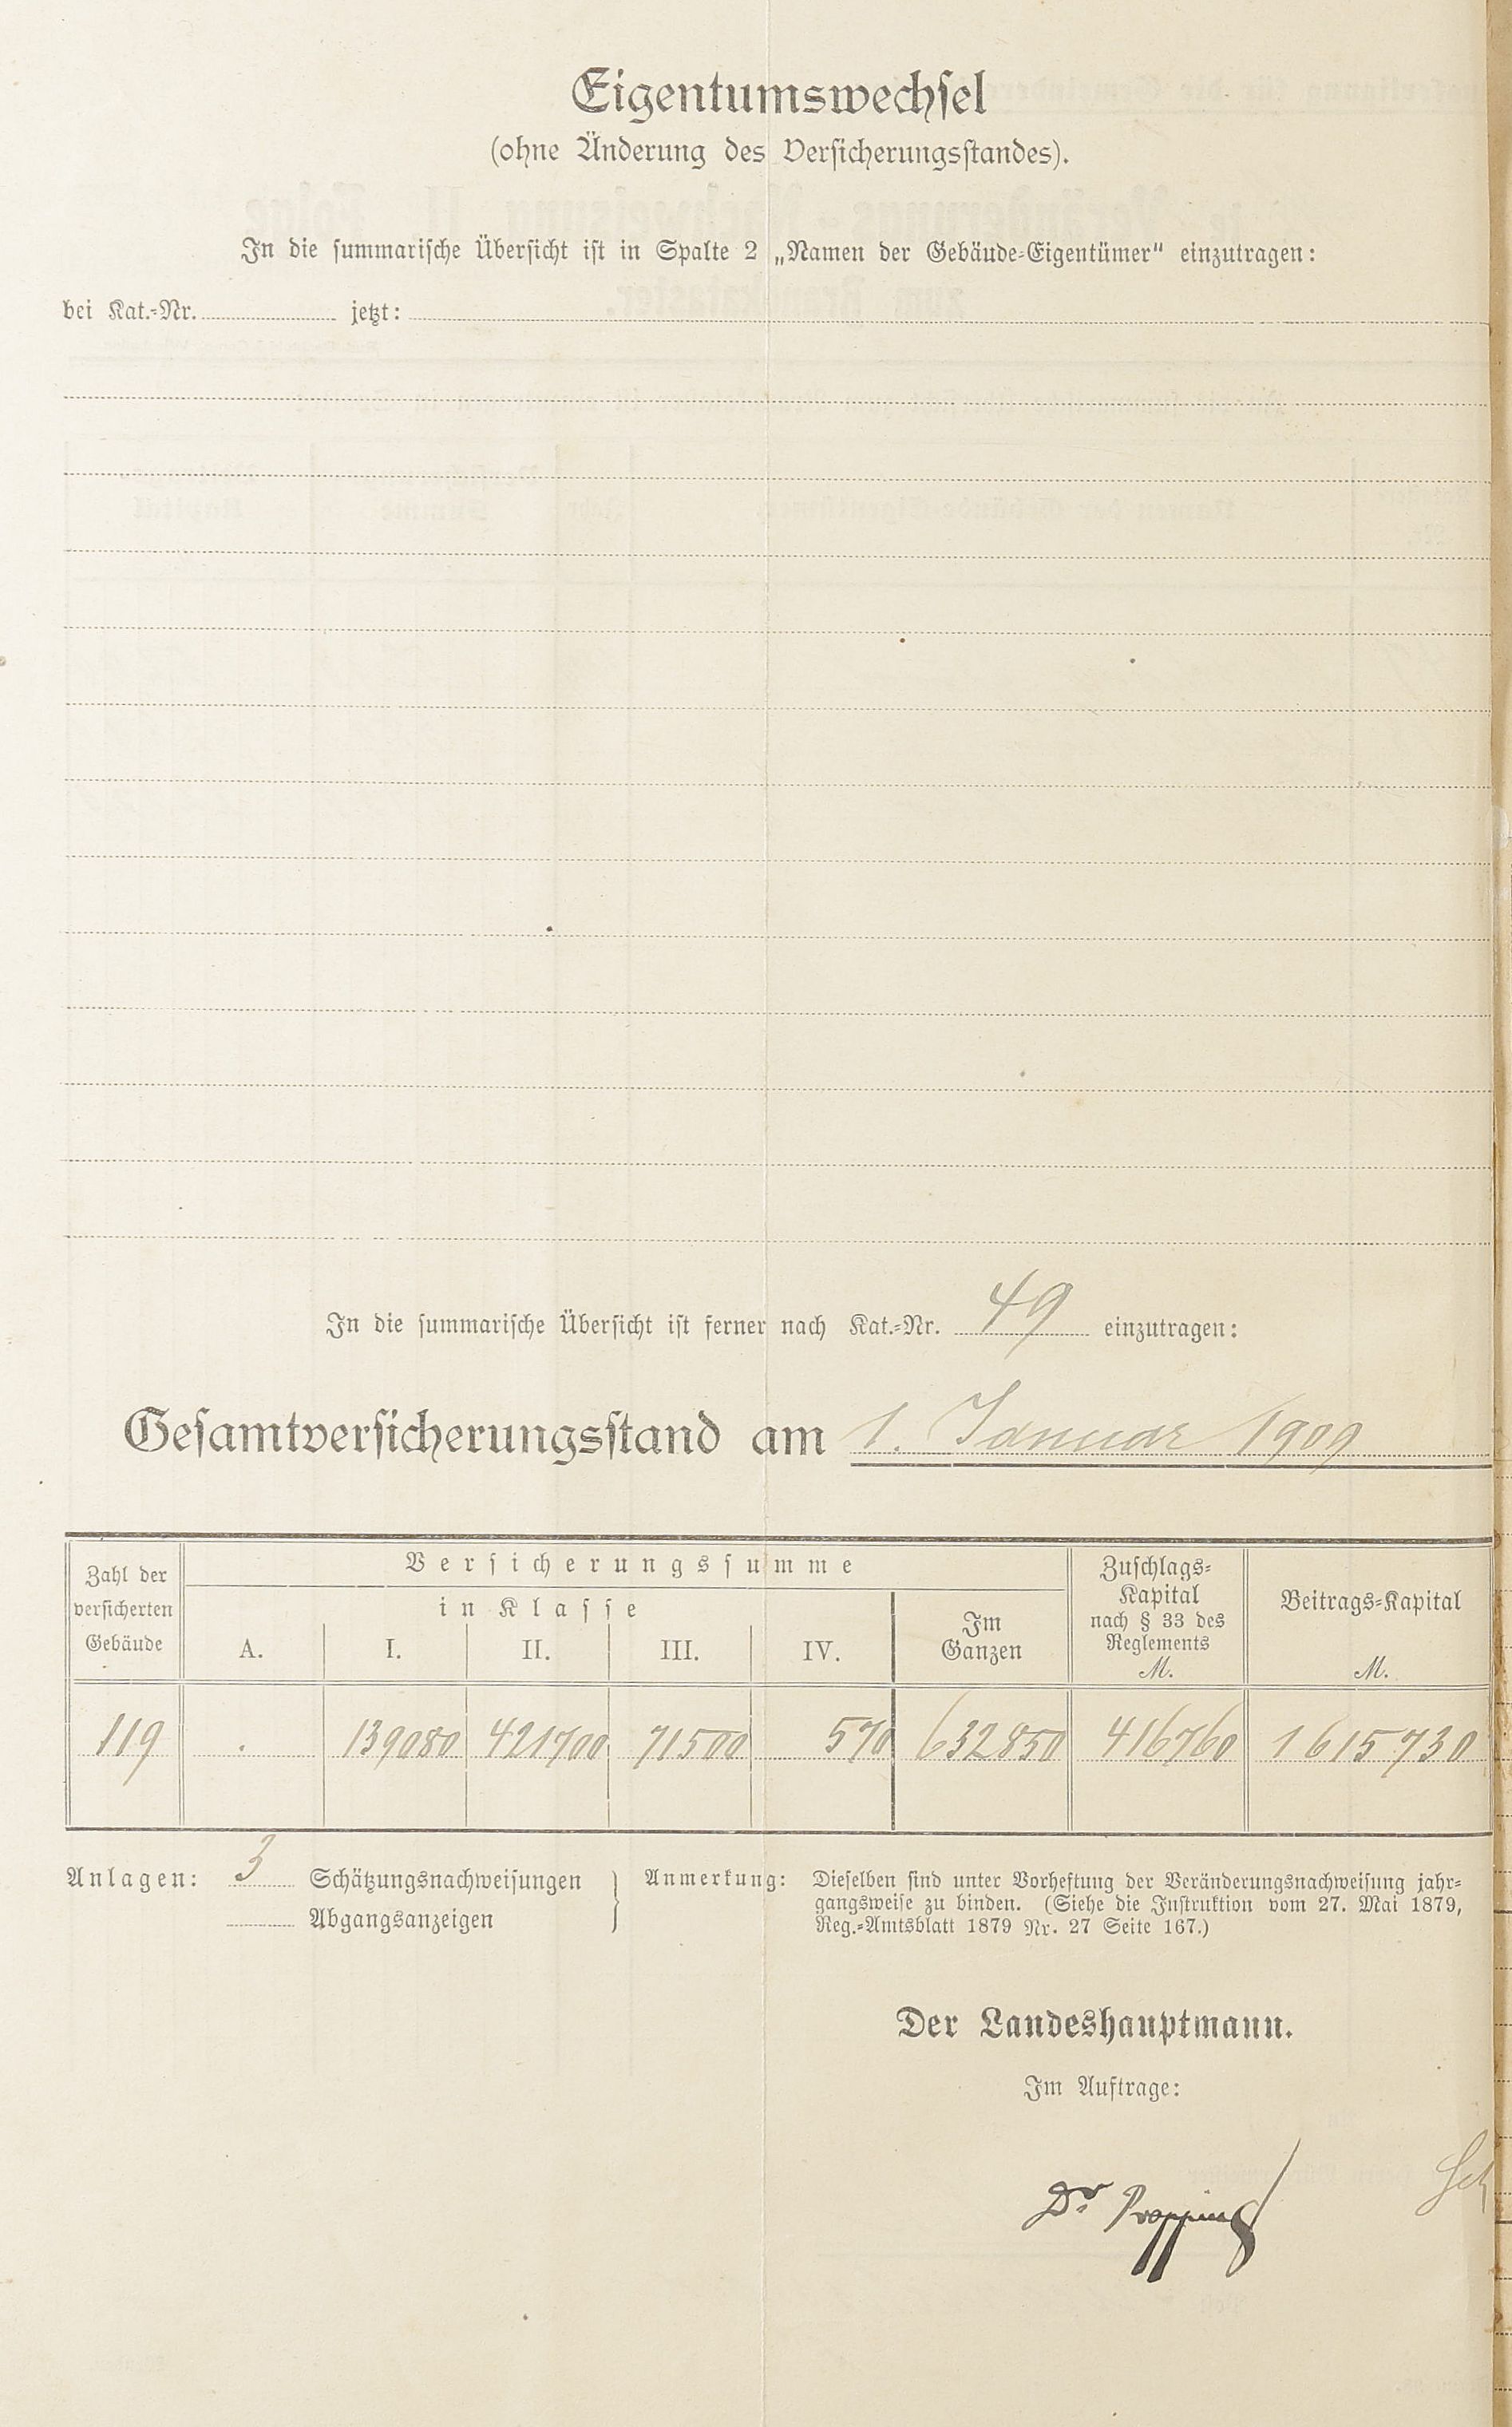 Eigentumswechsel
(ohne Änderung des Versicherungsstandes).
In die summarische Übersicht ist in Spalte 2 „Namen der Gebäude-Eigentümer“ einzutragen:
bei Kat.-Nr. jetzt:
In die summarische Übersicht ist ferner nach Kat.-Nr. 49 einzutragen:
Gesamtversicherungsstand am 1. Januar 1909
Zahl der versicherten Gebäude
Versicherungssumme
in Klasse
A. I. II. III. IV.
Im Ganzen
Zuschlags-Kapital nach § 33 des Reglements M.
Beitrags-Kapital M.
119 . 139080 421700 71500 570 632850 416760 1615730
Anlagen: 3 Schätzungsnachweisungen
Abgangsanzeigen
Anmerkung: Dieselben sind unter Vorheftung der Veränderungsnachweisung jahr-
gangsweise zu binden. (Siehe die Instruktion vom 27. Mai 1879,
Reg.-Amtsblatt 1879 Nr. 27 Seite 167.)
Der Landeshauptmann.
Im Auftrage:
Dr Propping